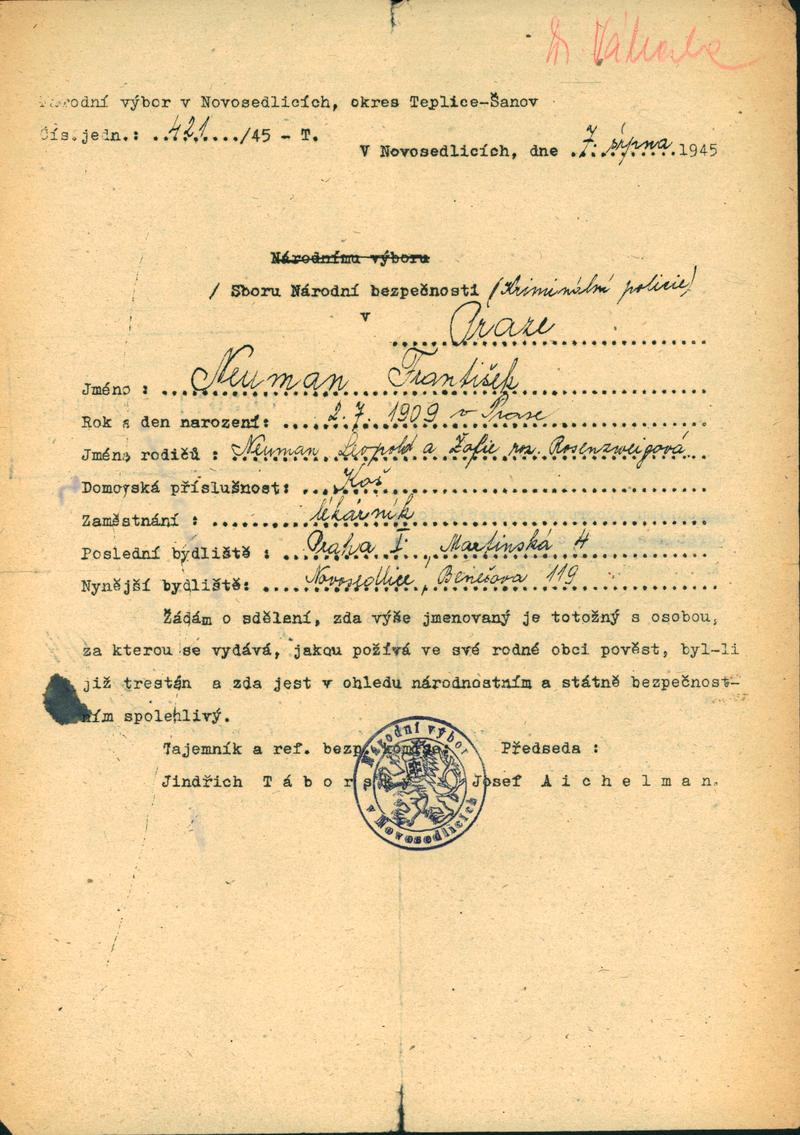 Národní výbor v Novosedlicích, okres Teplice-Šanov
Čís.jedn.: ..421..../45 - T.
V Novosedlicích, dne .7. srpna.1945
Národnímu výboru
/ Sboru Národní bezpečnosti (Kriminální policie)
v
Praze
Jméno : Neuman František
Rok a den narození: 2.7. 1909 v Praze
Jméno rodičů : Neuman Leopold a Žofie roz. Rosenzweigová
Domovská příslušnost: Koš
Zaměstnání : lékárník
Poslední bydliště : Praha I., Martinská 4
Nynější bydliště: Novosedlice, Benešova 119
Žádám o sdělení, zda výše jmenovaný je totožný s osobou,
za kterou se vydává, jakou požívá ve své rodné obci pověst, byl-li
již trestán a zda jest v ohledu národnostním a státně bezpečnost-
ním spolehlivý.
Tajemník a ref. bezp. komise: Předseda :
Jindřich T á b o r s k ý Josef A i c h e l m a n.
Národní výbor
v Novosedlicích